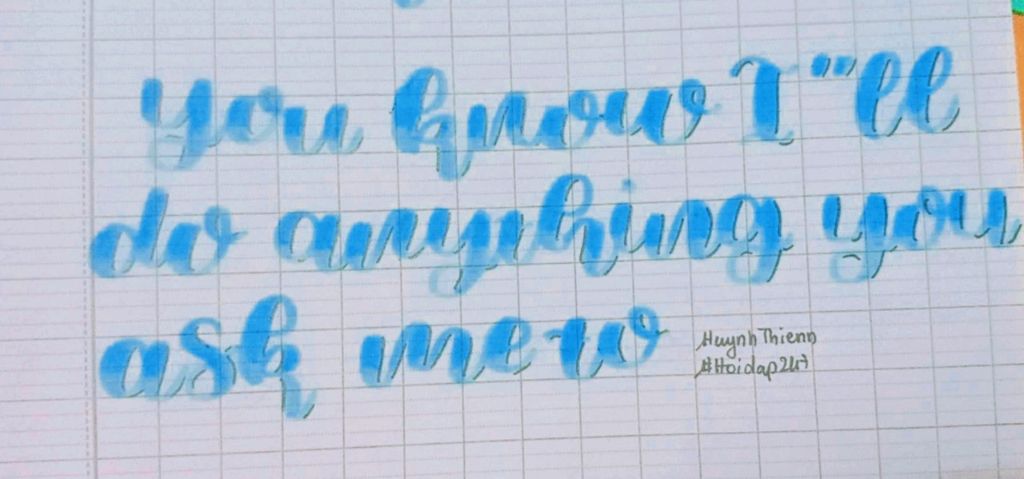 you know I"ll
do anything you
ask me to
Huynh Thienn
#Hoidap247